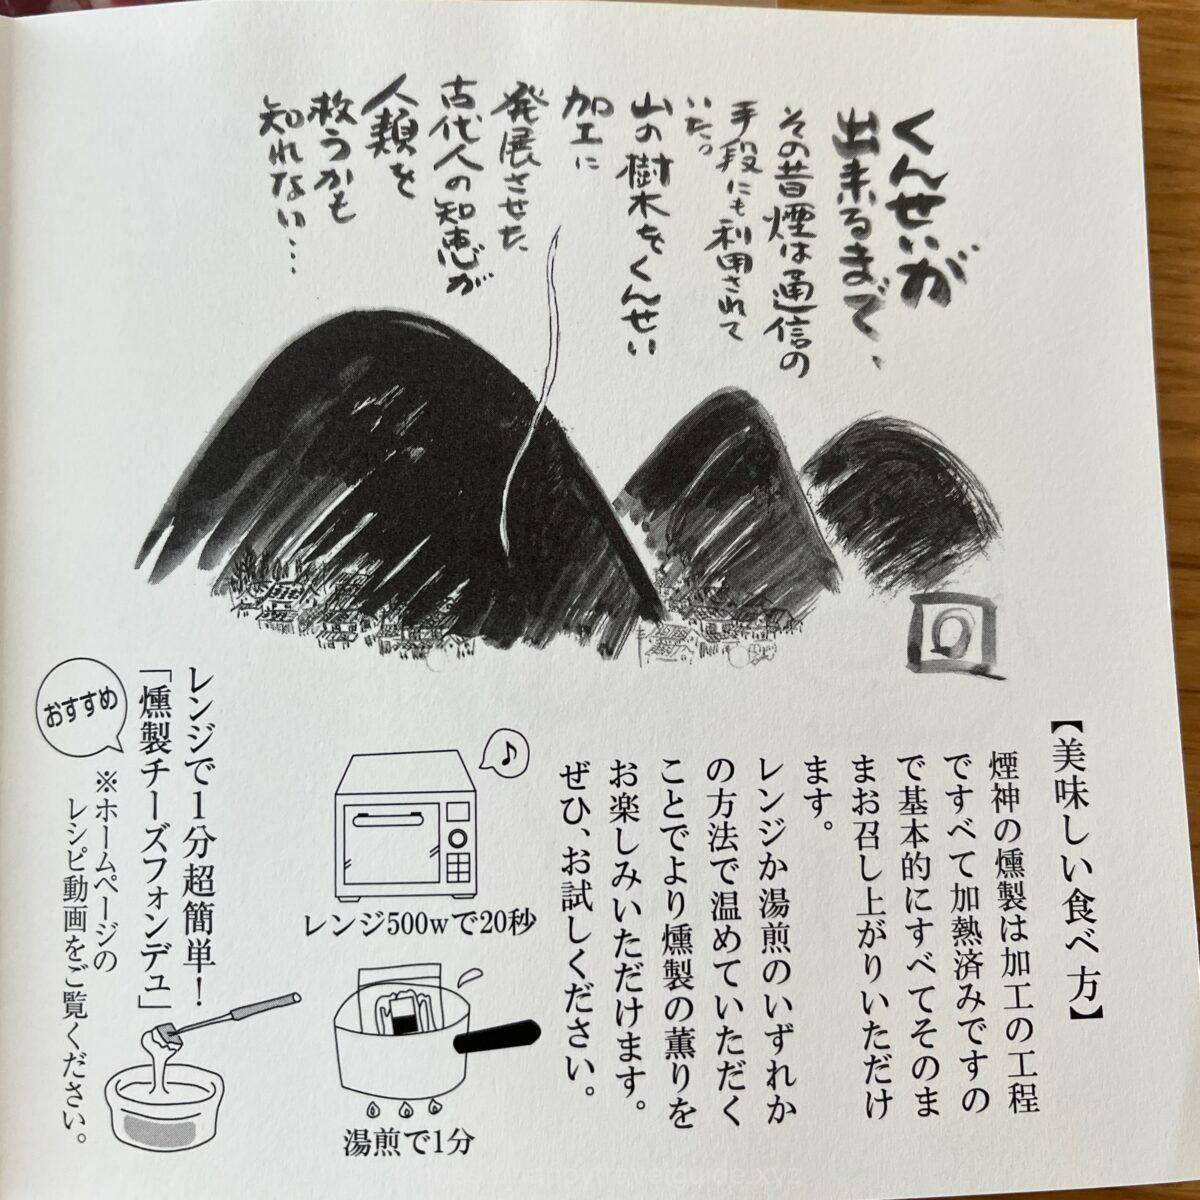 くんせいが
出来るまで、
その昔煙は通信の
手段にも利用されて
いた。
山の樹木をくんせい
加工に
発展させた
古代人の知恵が
人類を
救うかも
知れない…
【美味しい食べ方】
煙神の燻製は加工の工程
ですべて加熱済みですの
で基本的にすべてそのま
まお召し上がりいただけ
ます。
レンジか湯煎のいずれか
の方法で温めていただく
ことでより燻製の薫りを
お楽しみいただけます。
ぜひ、お試しください。
レンジ500wで20秒
湯煎で1分
おすすめ
レンジで1分超簡単！
「燻製チーズフォンデュ」
※ホームページの
レシピ動画をご覧ください。